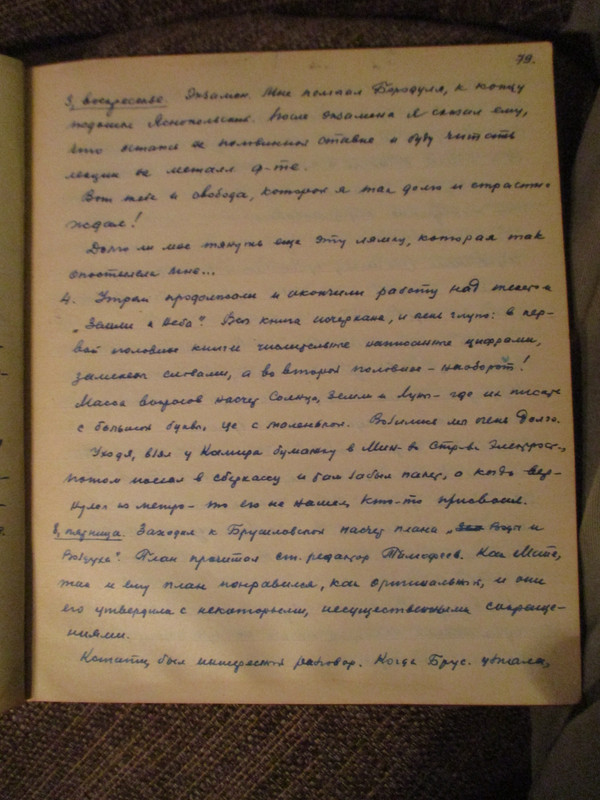 79.
3, воскресенье. Экзамен. Мне помогал Бородуля, к концу
подошел Яснопольский. После экзамена я сказал ему,
что остаюсь на половинной ставке и буду читать
лекции на металл. ф-те.
Вот тебе и свобода, которой я так долго и страстно
ждал!
Долго ли мне тянуть еще эту лямку, которая так
опостылела мне...
4. Утром продолжали и окончили работу над
„Земли и неба". Вся книга исчеркана, и пень глупо: в пер-
вой половине книги числительные написанные цифрами,
заменены словами, а во второй половине - наоборот!
Масса вопросов насчет Солнца, Земли и Луны - где их писать
с большой буквы, где с маленькой. Возились мы очень долго.
Уходя, взял у Камира бумажку в Мин-во Стр-ва Электрост.,
потом поехал в сберкассу и там забыл пакет, а когда вер-
нулся из метро - то его не нашел, кто-то присвоил.
8, пятница. Заходил к Брусиловской насчет плана „Воды и
Воздуха". План прочитал ст. редактор Тимофеев. Как Мите,
так и ему план понравился, как оригинальный, и они
его утвердили с некоторыми, несущественными сокраще-
ниями.
Кстати, был интересный разговор. Когда Брус. уезжала,